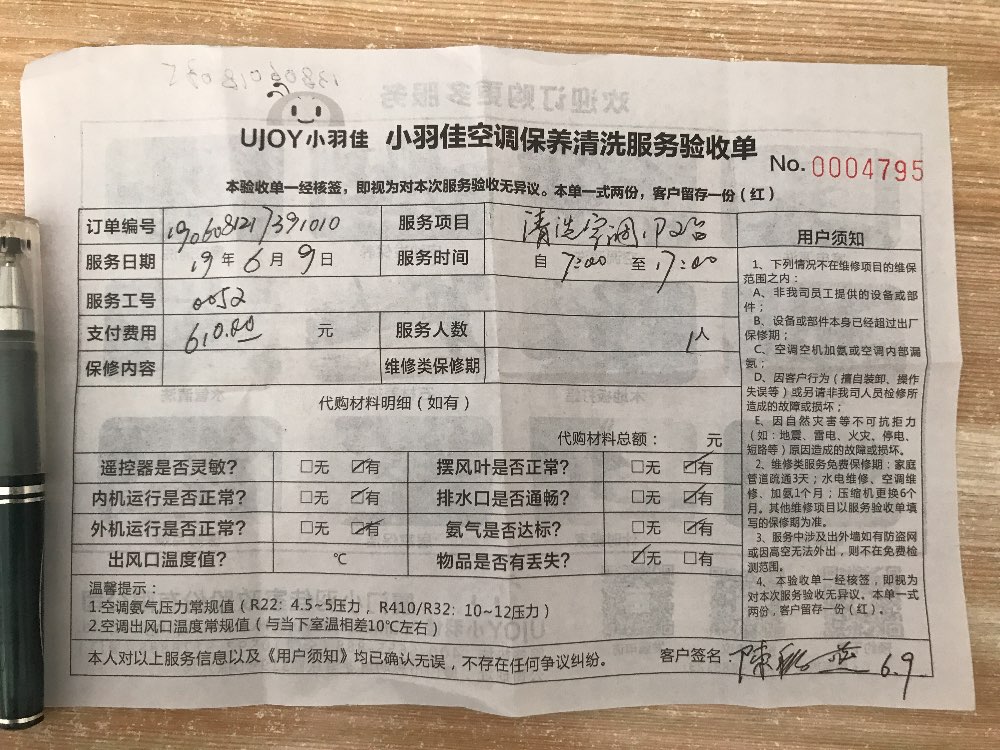 欢迎订购更多服务
UJOY小羽佳 小羽佳空调保养清洗服务验收单
No. 0004795
本验收单一经核签，即视为对本次服务验收无异议。本单一式两份，客户留存一份（红）
订单编号 1906081217391010 服务项目 清洗空调
服务日期 19年6月9日 服务时间 自 7:00 至 17:00
服务工号 0052
支付费用 610.00 元 服务人数 1人
保修内容 维修类保修期
代购材料明细（如有）
代购材料总额： 元
遥控器是否灵敏? □无 ☑有 摆风叶是否正常? □无 ☑有
内机运行是否正常? □无 ☑有 排水口是否通畅? □无 ☑有
外机运行是否正常? □无 ☑有 氨气是否达标? □无 ☑有
出风口温度值? ℃ 物品是否有丢失? ☑无 □有
温馨提示：
1.空调氨气压力常规值（R22: 4.5~5压力，R410/R32: 10~12压力）
2.空调出风口温度常规值（与当下室温相差10℃左右）
本人对以上服务信息以及《用户须知》均已确认无误，不存在任何争议纠纷。
客户签名： 陳 6.9
用户须知
1、下列情况不在维修项目的维保
范围之内：
A、非我司员工提供的设备或部
件；
B、设备或部件本身已经超过出厂
保修期；
C、空调空机加氨或空调内部漏
氨；
D、因客户行为（擅自装卸、操作
失误等）或另请非我司人员检修所
造成的故障或损坏；
E、因自然灾害等不可抗拒力
（如：地震、雷电、火灾、停电、
短路等）原因造成的故障或损坏。
2、维修类服务免费保修期：家庭
管道疏通3天；水电维修、空调维
修、加氨1个月；压缩机更换6个
月。其他维修项目以服务验收单填
写的保修期为准。
3、服务中涉及出外墙如有防盗网
或因高空无法外出，则不在免费检
测范围。
4、本验收单一经核签，即视为
对本次服务验收无异议。本单一式
两份，客户留存一份（红）。